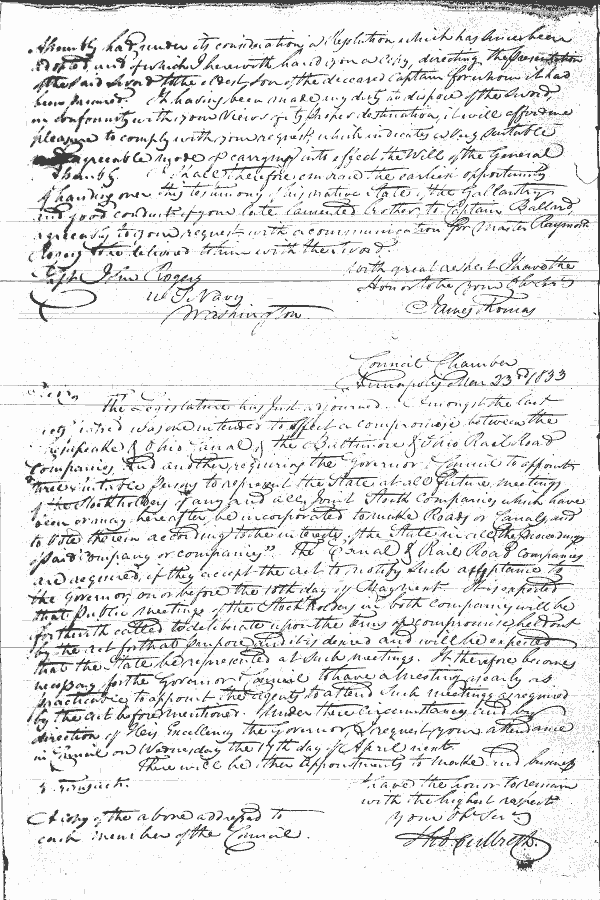 Assembly had under its consideration, a Resolution which has since been
adopted and of which I herewith hand you a Copy, directing the presentation
of the said Sword to the eldest Son of the deceased Captain for whom it had
been procured. It having been made my duty to dispose of the Sword,
in conformity with your Views of its proper destination, it will afford me
pleasure to comply with your request, which indicates a very suitable
agreeable mode of carrying into effect the Will of the General
Assembly. I shall therefore embrace the earliest opportunity
of handing over this testimony of his native State, of the Gallantry
and good conduct of your late lamented brother, to Captain Ballard,
agreeably to your request with a communication for Master Raymond
Rogers to be delivered to him with the Sword.
Capt. John Rogers
U S Navy
Washington.
With great respect I have the
Honor to be your Obt Svt
James Thomas
Council Chamber
Annapolis Mar 23rd 1833
The Legislature has just adjourned. Amongst the last
passed was one intended to effect a compromise between the
Chesapeake & Ohio Canal, & the Baltimore & Ohio Rail Road
Companies, and another, requiring the Governor & Council to appoint
three suitable persons to represent the State at all future meetings
of the Stockholders of any and all Joint Stock Companies which have
been or may hereafter be incorporated to make Roads or Canals, and
to vote therein according to the interest of the State in all the proceedings
of said company or companies". The Canal & Rail Road Companies
are required, if they accept the Act to notify such acceptance to
the Governor on or before the 10th day of May next. It is expected
that public meetings of the Stockholders in both companies will be
forthwith called to deliberate upon the terms of compromise held out
by the act for that purpose and it is desired and will be expected
that the State be represented at such meetings. It therefore becomes
necessary for the Governor & Council to have a meeting as early as
practicable to appoint the agents to attend such meetings as required
by the act before mentioned. Under these circumstances, and by
direction of His Excellency the Governor I request your attendance
in Council on Wednesday the 17th day of April next.
There will be other appointments to make and business
to transact.
I have the honor to remain
with the highest respect
your Obt Servt
Ths. Culbreth.
A Copy of the above addressed to
each member of the Council.